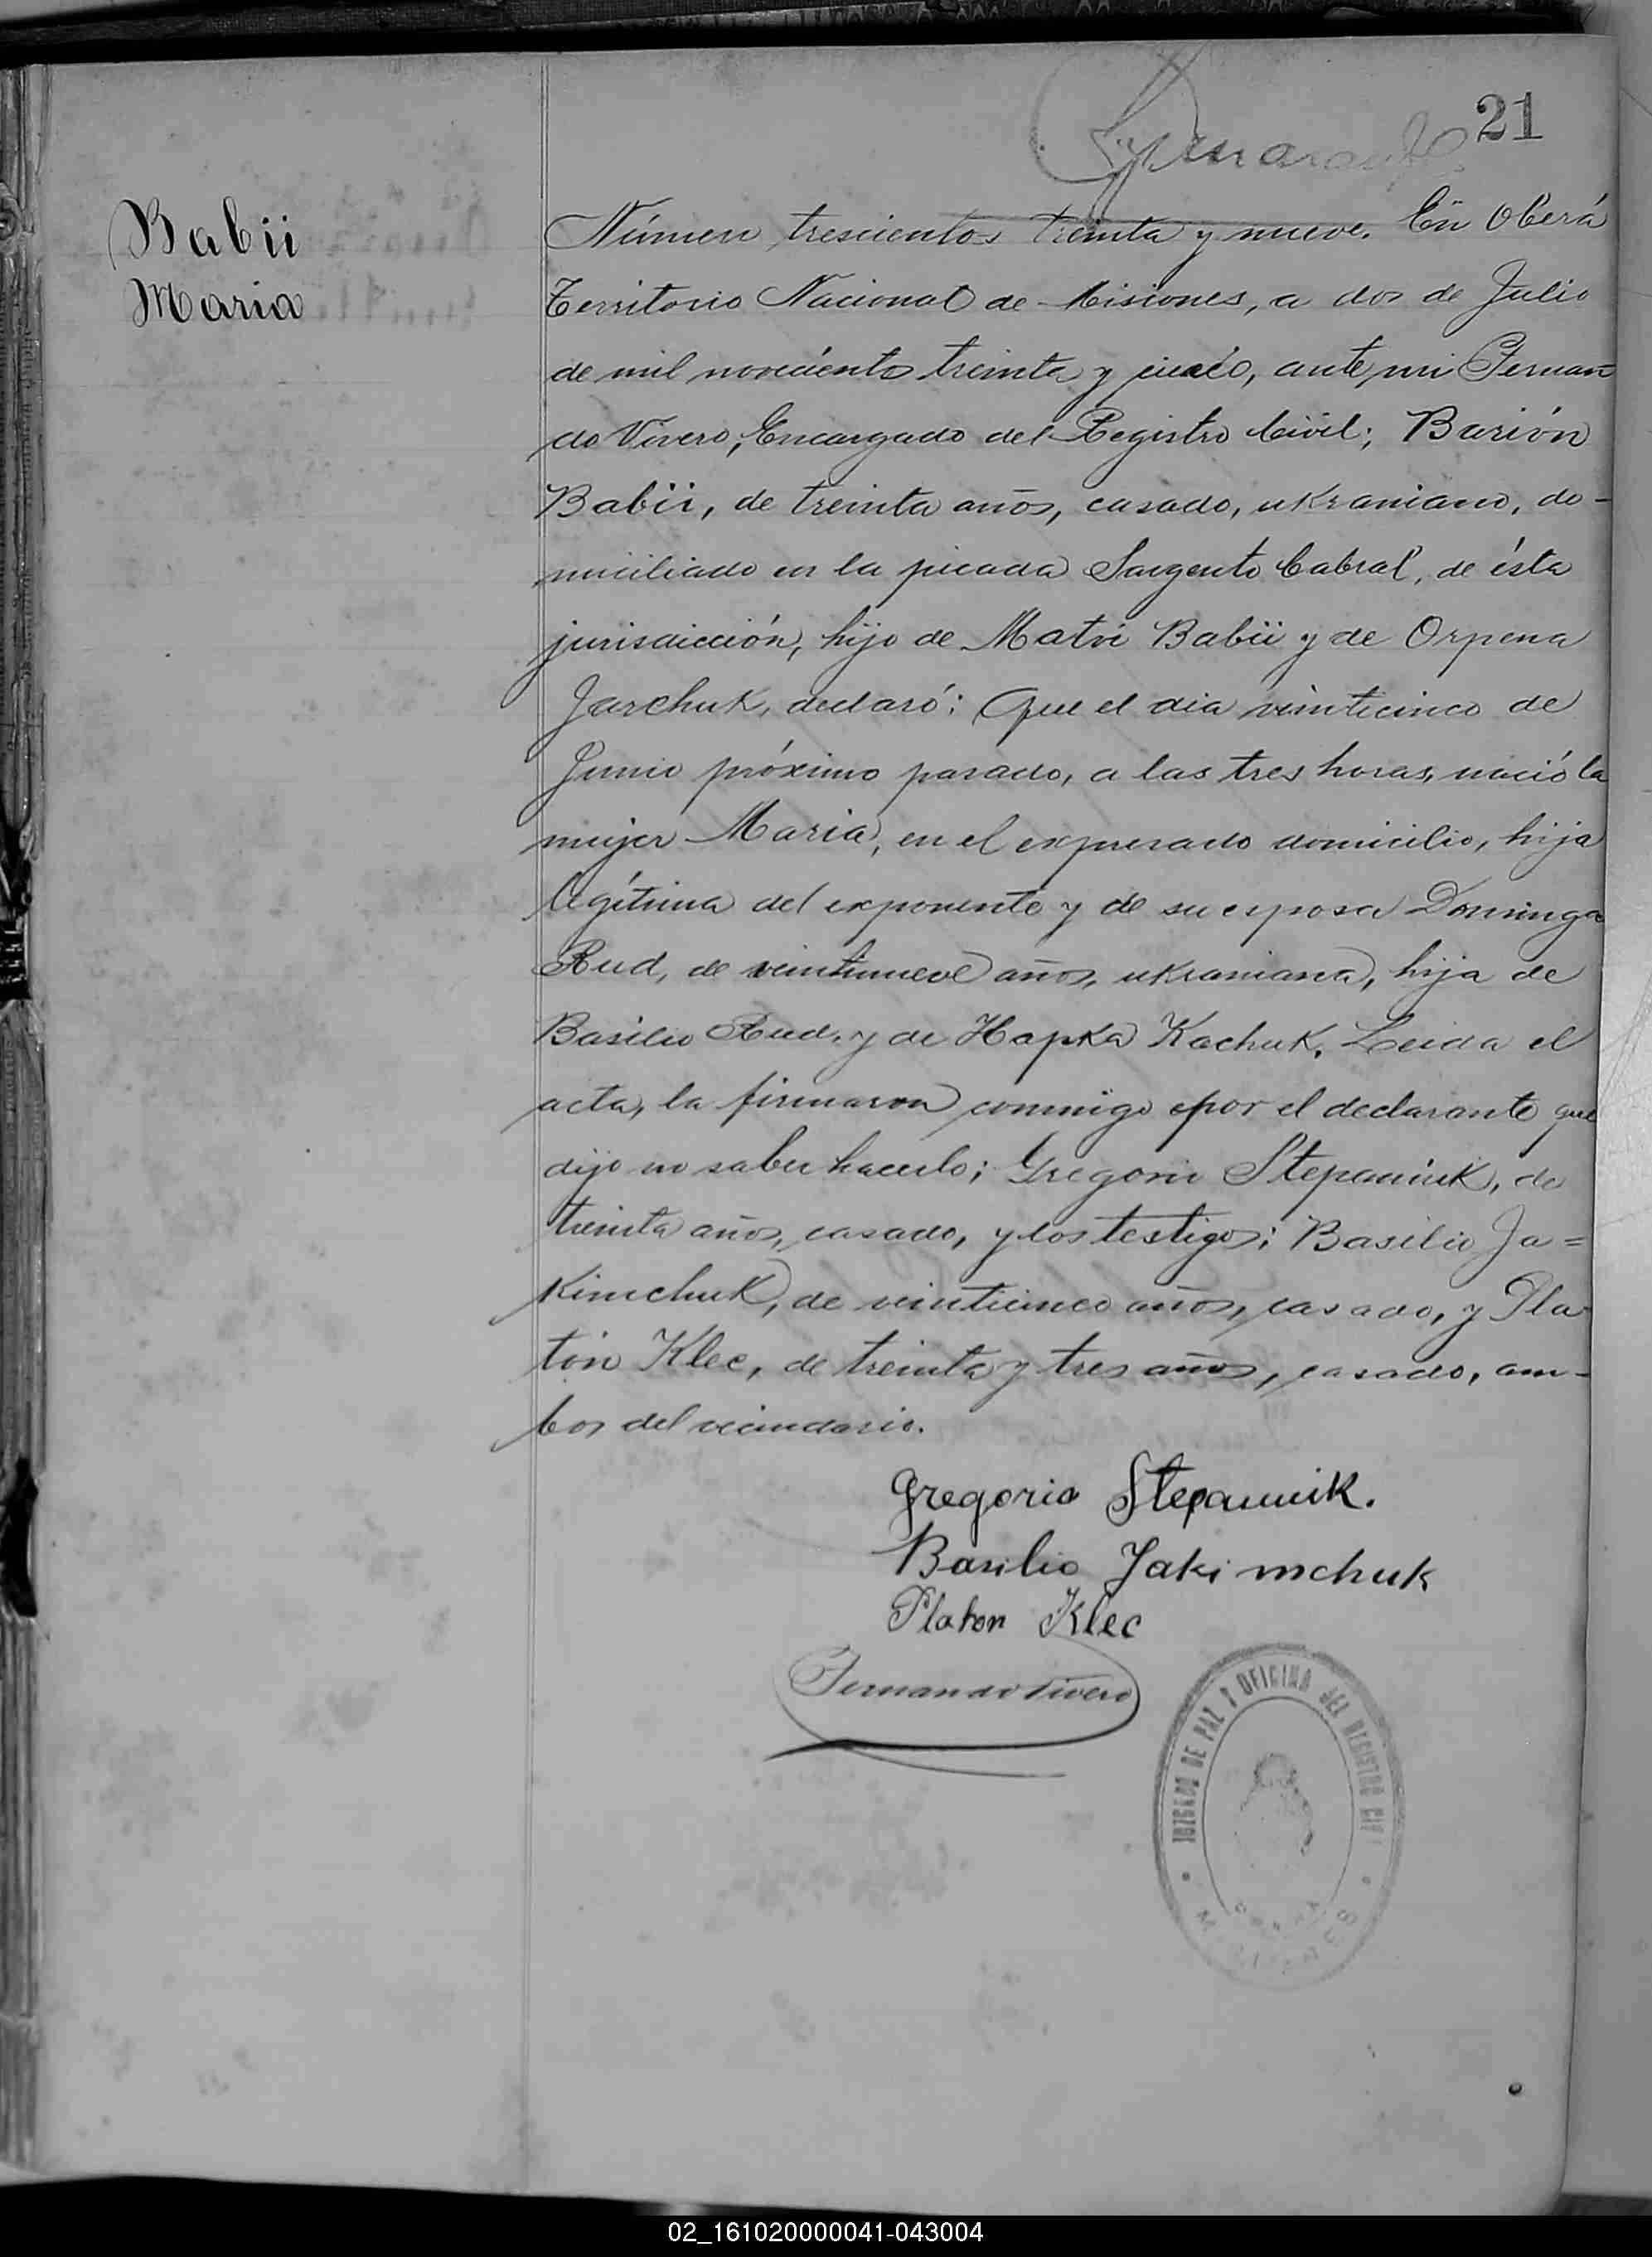 21
Babii
Maria
Número trescientos treinta y nueve. En Oberá
Territorio Nacional de Misiones, a dos de Julio
de mil novecientos treinta y, ante mi Fernan
do Vivero, Encargado del Registro Civil; Barión
Babii, de treinta años, casado, ukraniano, do-
miciliado en la picada Sargento Cabral, de ésta
jurisdicción, hijo de Matvi Babii y de Orpena
Jarchuk, declaró: Que el dia veinticinco de
Junio próximo pasado, a las tres horas, nació la
mujer Maria, en el expresado domicilio, hija
legítima del exponente y de su esposa Dominga
Rud, de veintinueve años, ukraniana, hija de
Basilio Rud, y de Hapka Kachuk. Leida el
acta, la firmaron conmigo por el declarante que
dijo no saber hacerlo; Gregorio Stepaniuk, de
treinta años, casado, y los testigos; Basilio Ja=
kimchuk, de veinticinco años, casado, y Pla
tón Klec, de treinta y tres años, casado, am-
bos del vecindario.
Gregorio Stepaniuk.
Basilio Jakimchuk
Platon Klec
Fernando Vivero
JUZGADO DE PAZ Y OFICINA DEL REGISTRO CIVIL
MISIONES
02_161020000041-043004